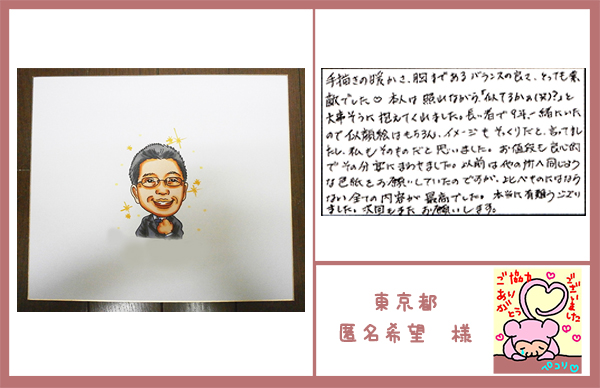 手描きの暖かさ、胸まであるバランスの良さ、とっても素
敵でした♡ 本人は照れながら「似てるかぁ(笑)?」と
大事そうに抱えてくれました。長い者で9年一緒にいた
ので似顔絵はもちろん、イメージもそっくりだと言ってまし
たし、私もそのものだと思いました。お値段も良心的
でその分宴にまわせました。以前は他の所へ同じような
色紙をお願いしていたのですが、比べものにはなら
ない全ての内容が最高でした。本当に有難うござい
ました。次回もまたお願いします。
東京都
匿名希望 様
ご協力
ありがとう
ございました
ペコリ